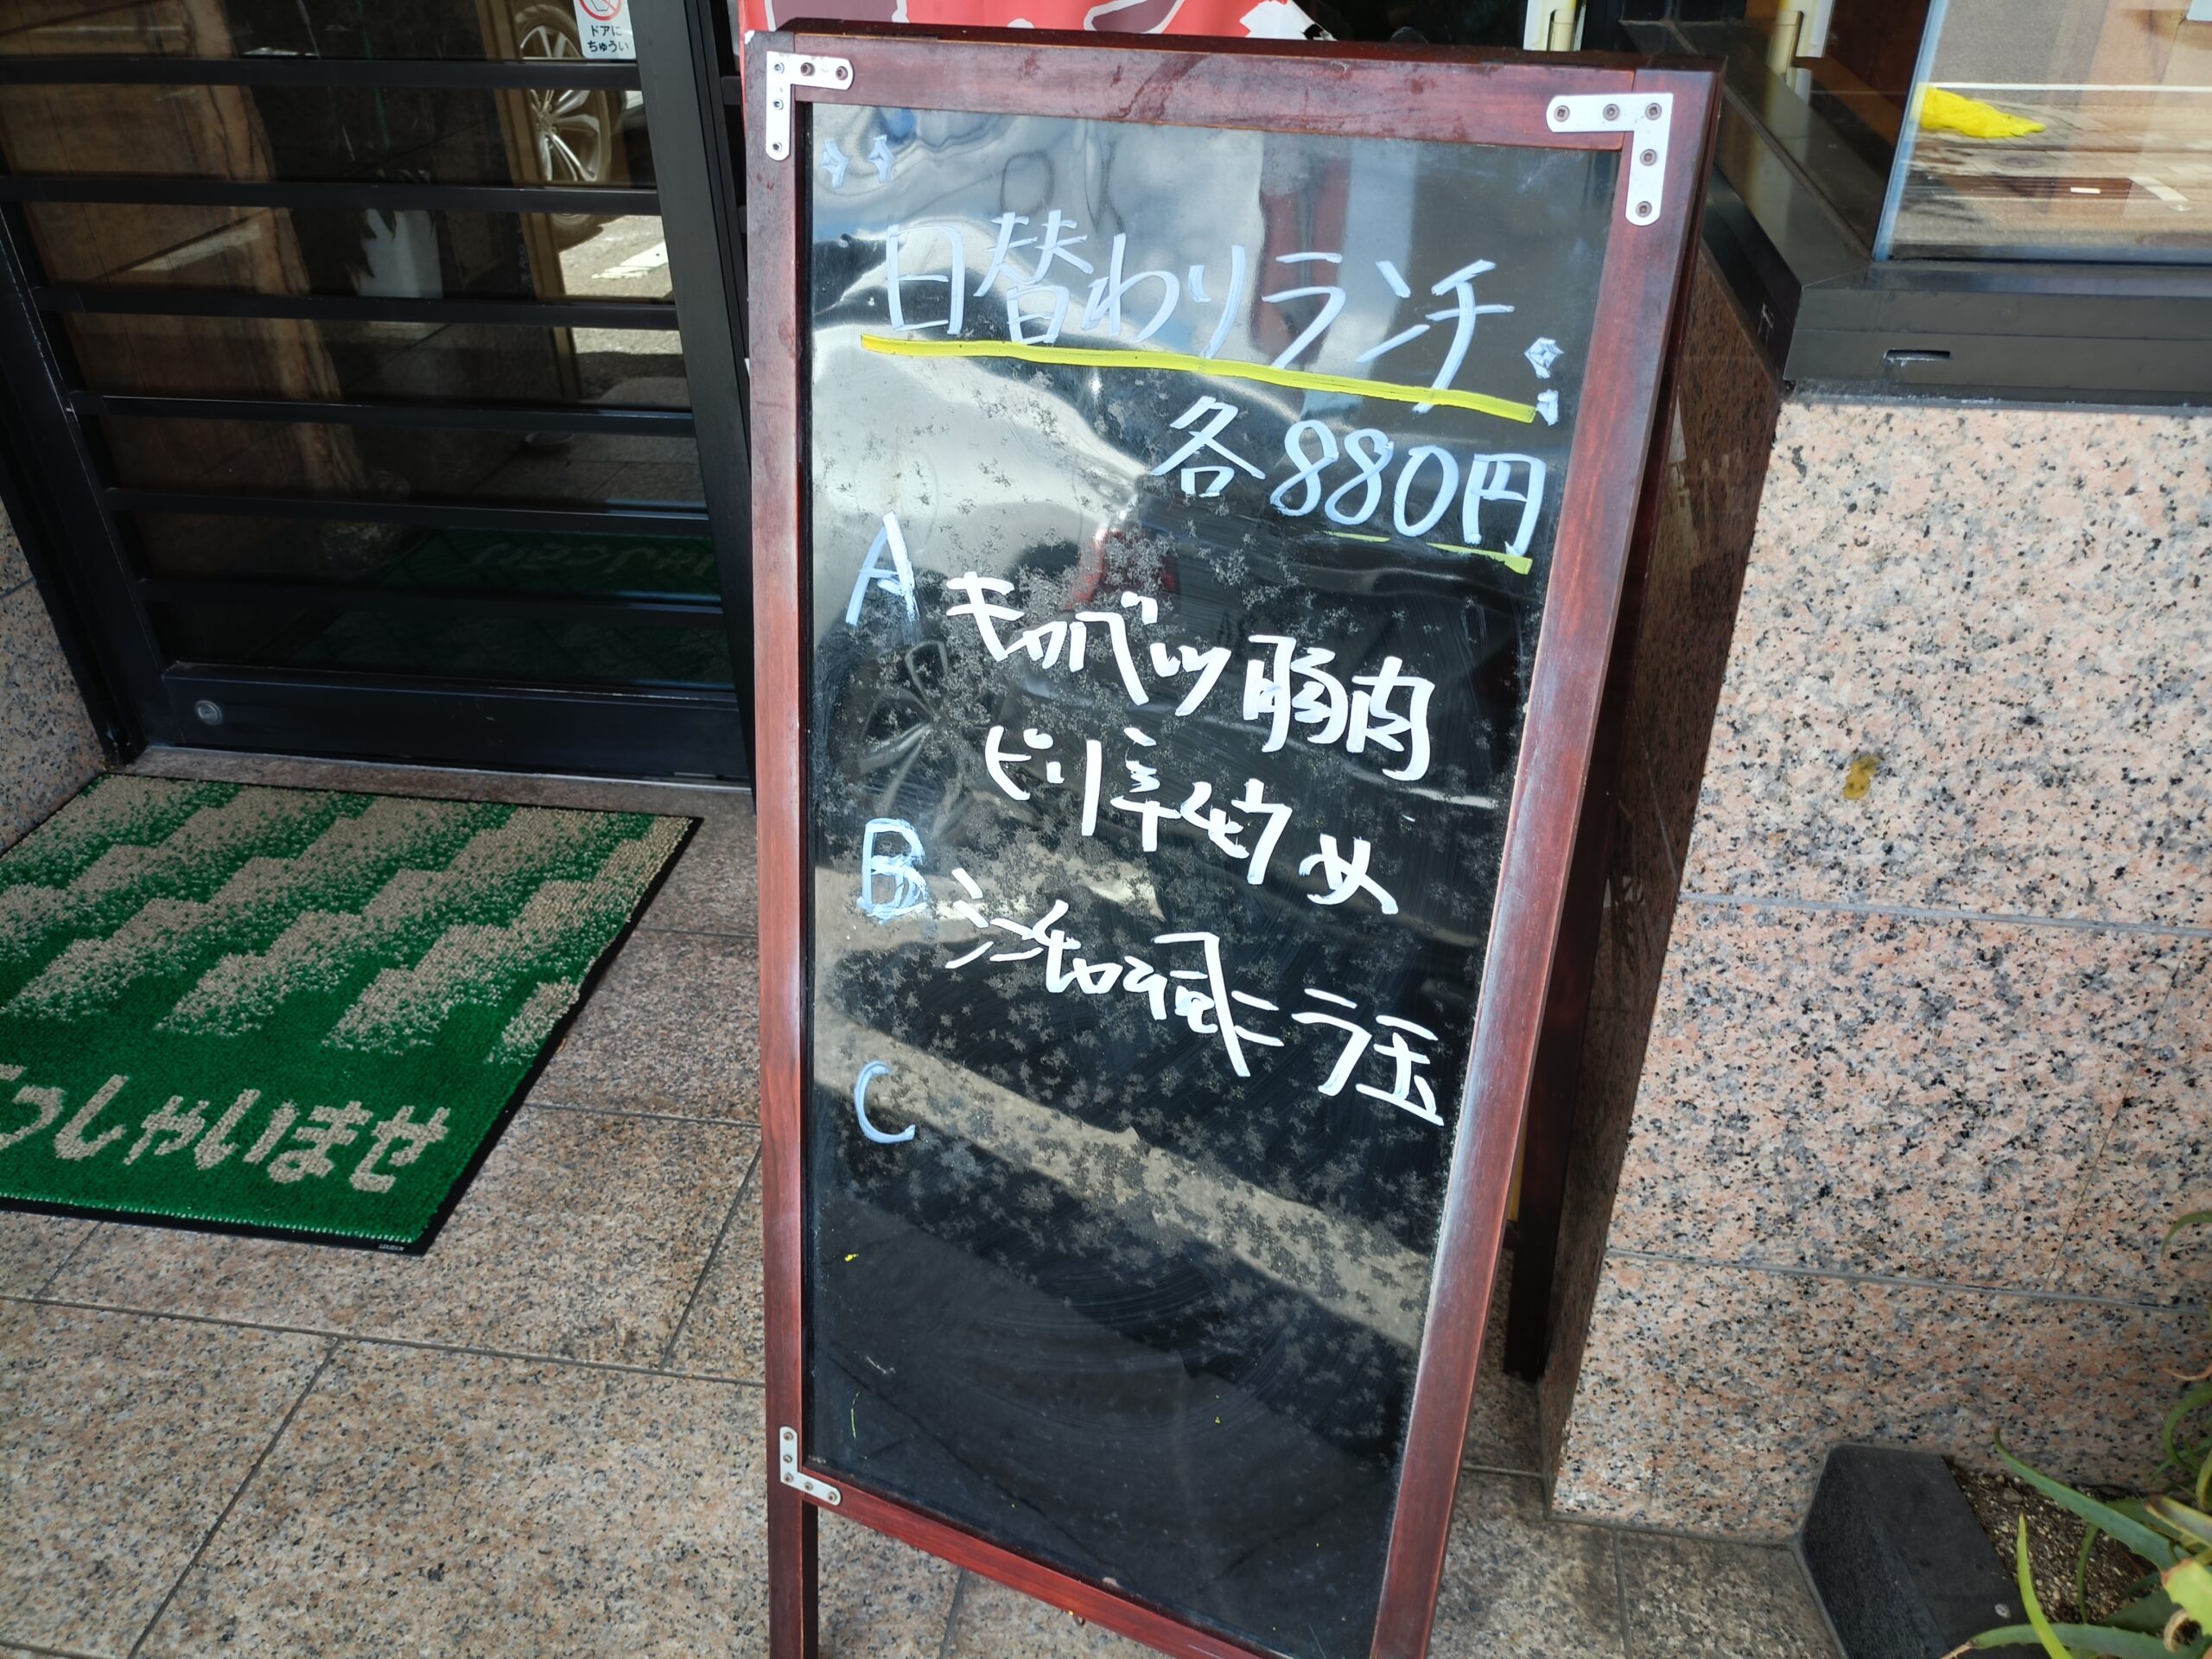 ドアに
ちゅうい
日替わりランチ
各880円
A キャベツ豚肉
ピリ辛炒め
B シンガポール風ニラ玉
C
っしゃいませ